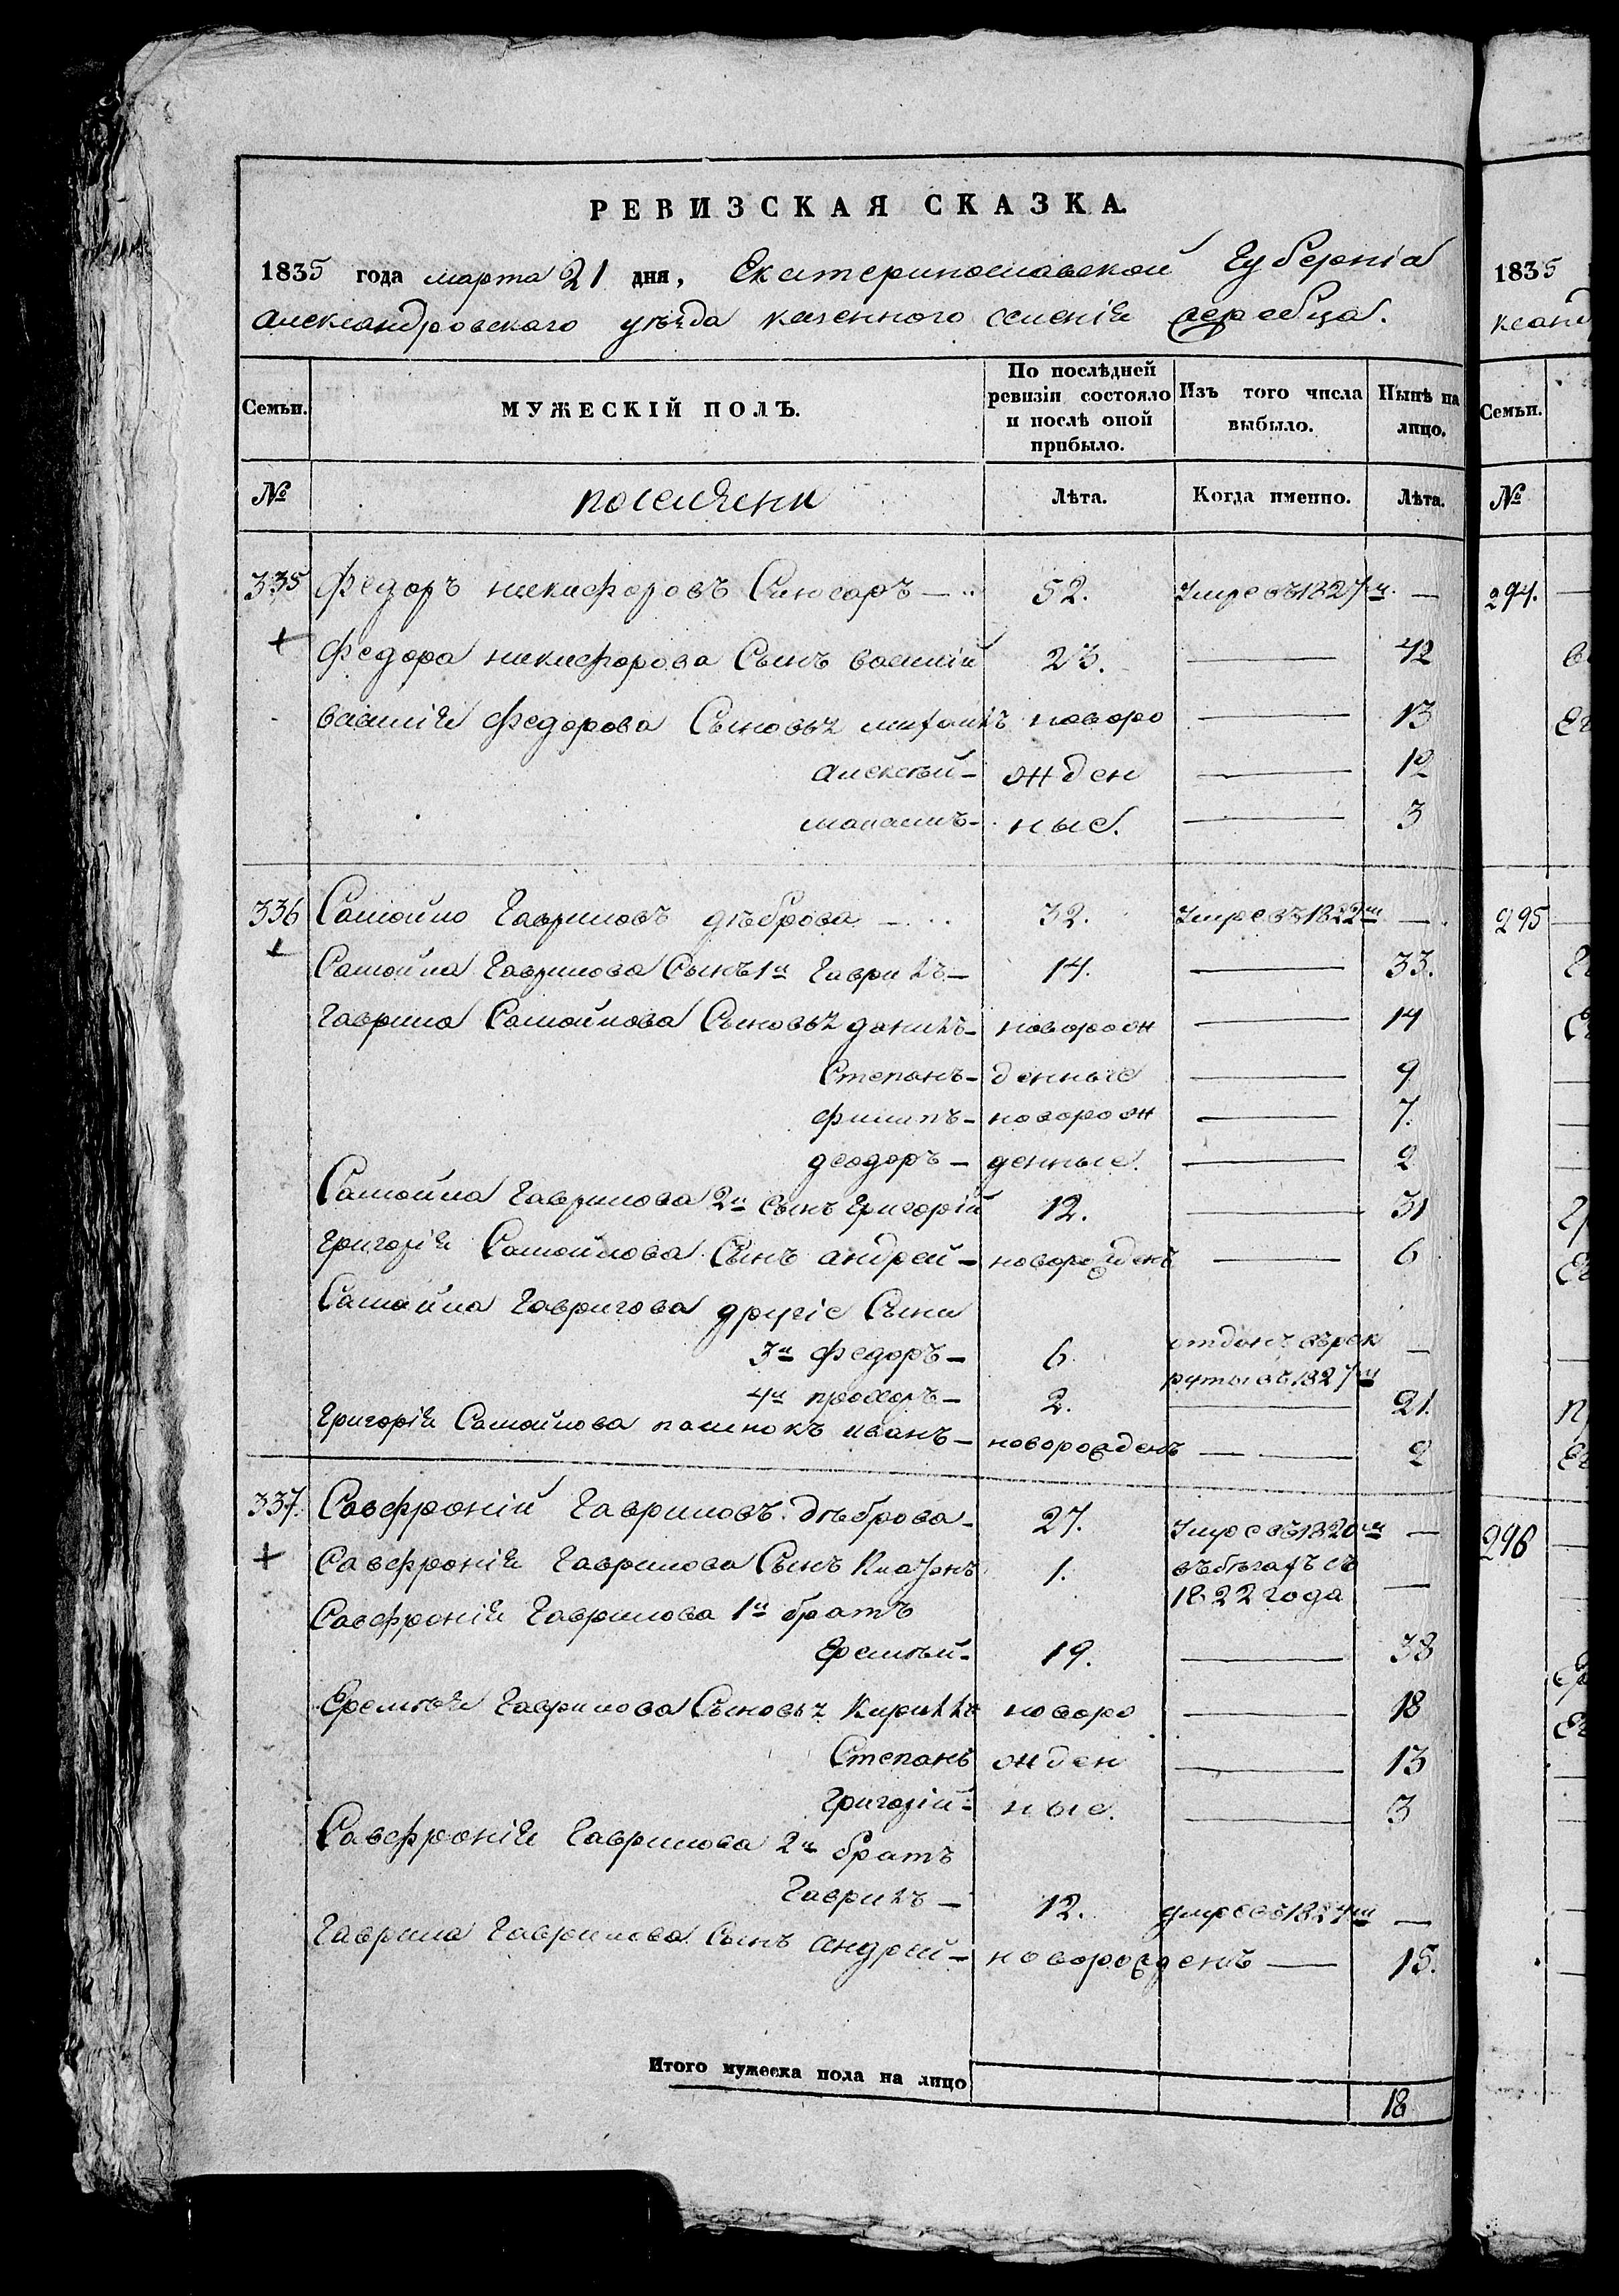 РЕВИЗСКАЯ СКАЗКА.
1835 года марта 21 дня, Екатеринославской Губерніи
Александровскаго уѣзда казенного селенія Жеребца.
Семьи. МУЖЕСКІЙ ПОЛЪ. По послѣдней ревизіи состояло и послѣ оной прибыло. Изъ того числа выбыло. Нынѣ на лицо.
№ поселяни Лѣта. Когда именно. Лѣта.
335 Федоръ никифоровъ Слюсаръ — 52. Умре въ 1827м —
Федора никифорова Сынъ василій 23. — 42
василія Федорова Сыновья михаилъ новоро — 13
алексѣй — жден — 12
— ные. — 3
336 Самойло Гавриловъ дѣброва — 32. Умре въ 1822м —
Самойла Гаврилова Сынъ 1й Гаврилъ — 14. — 33.
Гаврила Самойлова Сыновья данилъ — новорож — 14
Степанъ — денные — 9
филипъ — новорож — 7.
феодоръ — денные. — 2
Самойла Гаврилова 2й сынъ Григорій 12. — 31
Григорія Самойлова Сынъ андрей — новорожденъ — 6
Самойла Гаврилова другіе Сыны
3й Федоръ — 6. отданъ въ рек —
руты въ 1827м
4й прохоръ — 2. — 21.
Григорія Самойлова пасинокъ иванъ — новорожденъ — 2
337. Савфроній Гавриловъ дѣброва — 27. Умре въ 1820м —
Савфронія Гаврилова Сынъ Платонъ 1. въ бѣгахъ съ
1822 года —
Савфронія Гаврилова 1й братъ
Еремѣй — 19. — 38
Еремѣя Гаврилова Сыновья Кирилъ новоро — 18
Степанъ жден — 13
Григорій — ные. — 3
Савфронія Гаврилова 2й братъ
Гаврилъ — 12. умре въ 1824м —
Гаврила Гаврилова Сынъ андрей — новорожденъ — 15.
Итого мужеска пола на лицо 18
1835
ксанд
Семьи.
№
294.
295
296